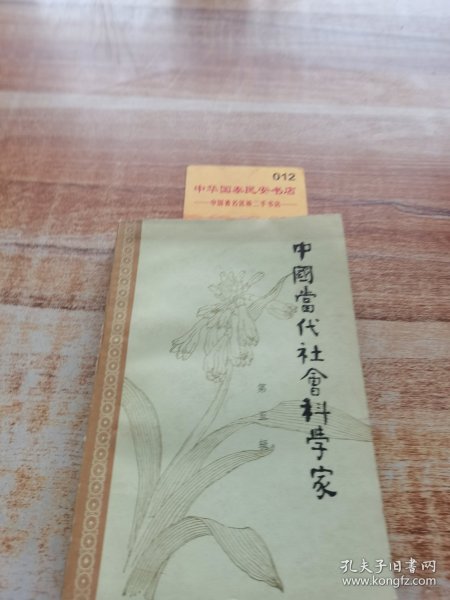 012
中华国泰民安书店
中国著名民族二手书店
中國當代社會科学家
第五辑
孔夫子旧书网
www.kongfz.com